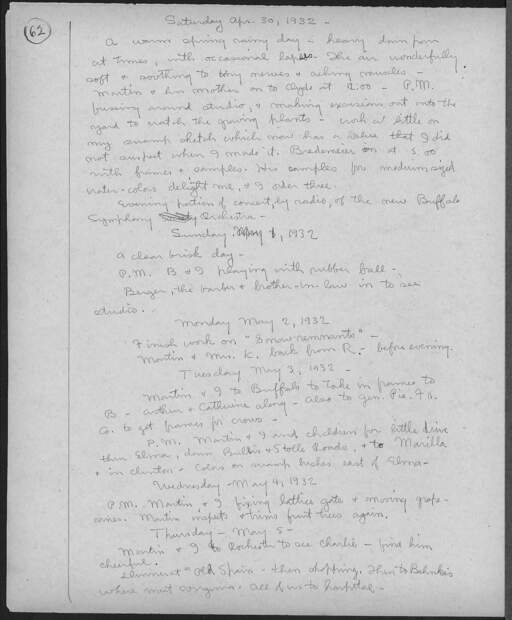 62
Saturday Apr. 30, 1932 -
A warm spring rainy day - heavy down pour
at times, with occasional lapses. The air wonderfully
soft & soothing to tiny nerves & aching muscles -
Martin & his mother on to Clyde at 2.00 - P.M.
fussing around studio, & making excursions out into the
yard to watch the growing plants - work a little on
my swamp sketch which now has a value that I did
not suspect when I made it. Bredemeier on at 5.00
with frames & samples. His samples for medium sized
water-colors delight me, & I order three.
Evening portion of concert, by radio, of the new Buffalo
Symphony Orchestra -
Sunday May 1, 1932
A clear brisk day -
P.M. B & I playing with rubber ball -
Berger, the barber & brother-in-law in to see
studio. -
Monday May 2, 1932
Finish work on "Snow remnants" -
Martin & Mrs. K. back from R. - before evening.
Tuesday May 3, 1932 -
Martin & I to Buffalo to take in frames to
B - Arthur & Catherine along - also to Gen. Pie. & Fr.
Co. to get frames for crows -
P.M. Martin & I and children for little drive
thru Elma, down Bullis & Stolle Roads, & to Marilla
& in Clinton - Colors on swamp bushes east of Elma -
Wednesday - May 4, 1932
P.M. Martin & I fixing lattice gate & moving grape-
vines. Martin inspects & trims fruit trees again.
Thursday - May 5 -
Martin & I to Rochester to see Charlie - find him
cheerful.
Dinner at "Old Spain - then shopping. Then to Behnke's
where meet Virginia. All of us to hospital -